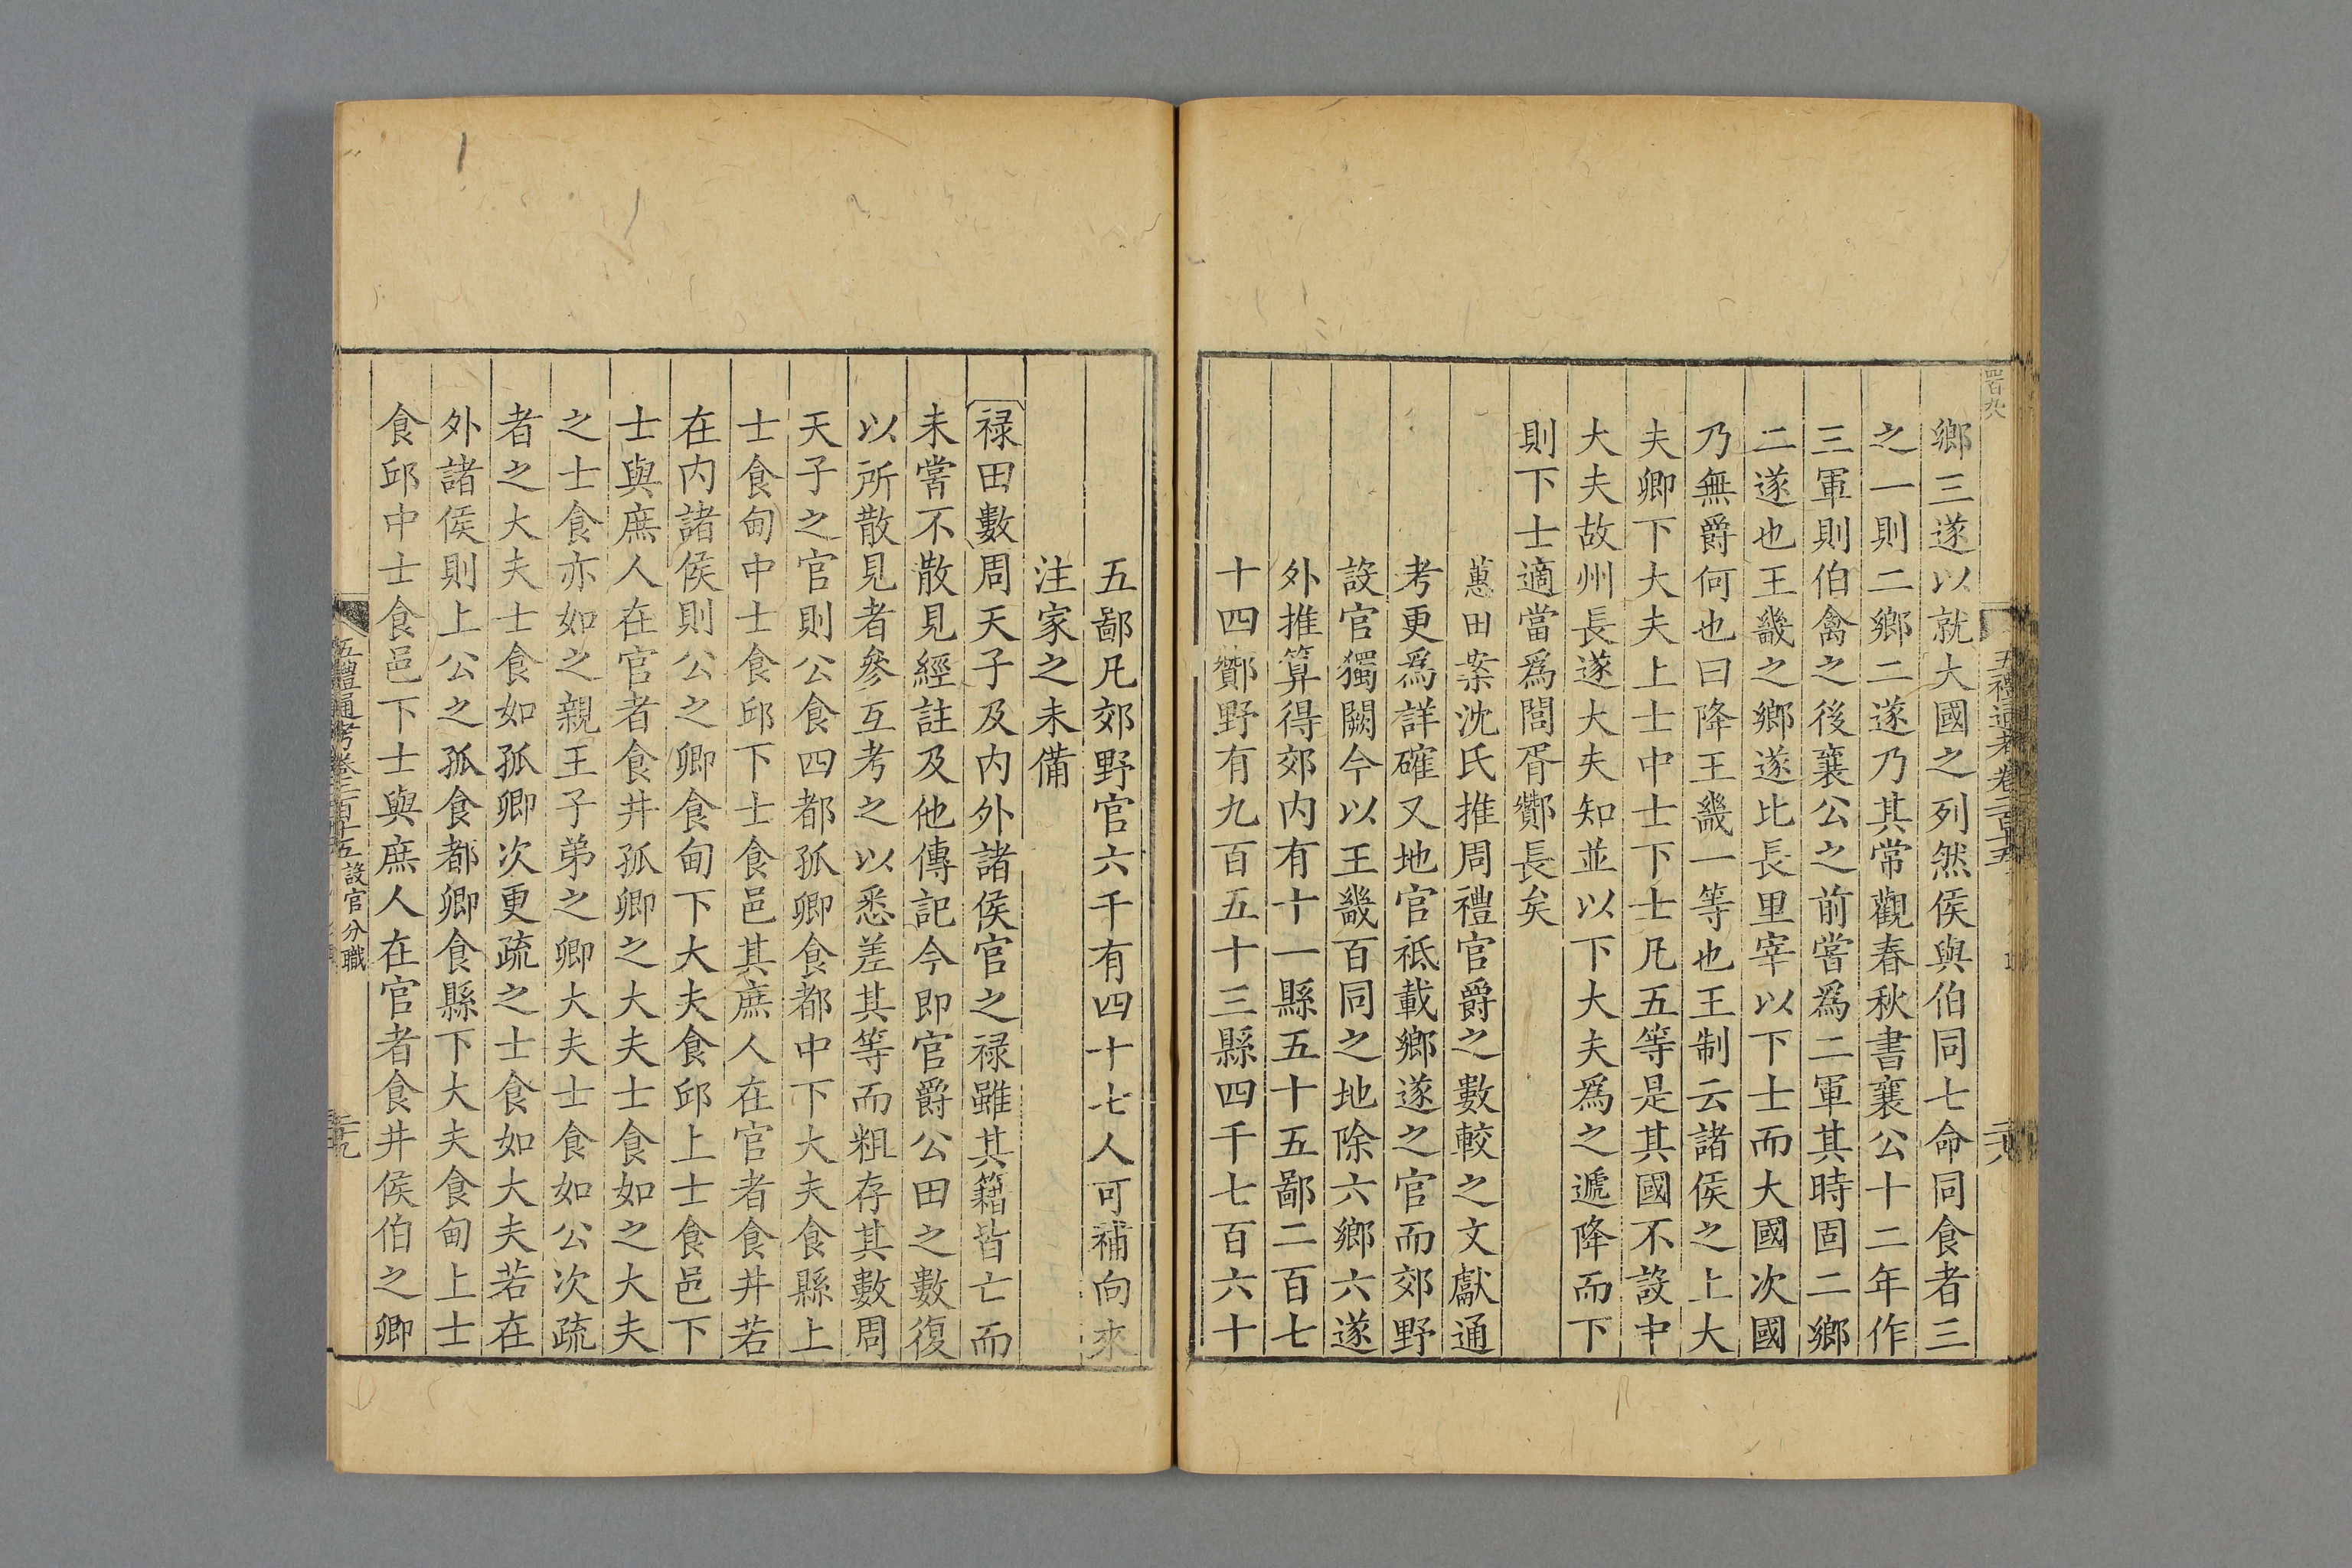 鄉三遂以就大國之列然侯與伯同七命同食者三
之一則二鄉二遂乃其常觀春秋書襄公十二年作
三軍則伯禽之後襄公之前嘗爲二軍其時固二鄉
二遂也王畿之鄉遂比長里宰以下士而大國次國
乃無爵何也曰降王畿一等也王制云諸侯之上大
夫卿下大夫上士中士下士凡五等是其國不設中
大夫故州長遂大夫知並以下大夫爲之遞降而下
則下士適當爲閭胥酇長矣
蕙田案沈氏推周禮官爵之數較之文獻通
考更爲詳確又地官祗載鄉遂之官而郊野
設官獨闕今以王畿百同之地除六鄉六遂
外推算得郊内有十一縣五十五鄙二百七
十四酇野有九百五十三縣四千七百六十
五鄙凡郊野官六千有四十七人可補向來
注家之未備
禄田數周天子及内外諸侯官之禄雖其籍皆亡而
未嘗不散見經註及他傳記今即官爵公田之數復
以所散見者參互考之以悉差其等而粗存其數周
天子之官則公食四都孤卿食都中下大夫食縣上
士食甸中士食邱下士食邑其庶人在官者食井若
在内諸侯則公之卿食甸下大夫食邱上士食邑下
士與庶人在官者食井孤卿之大夫士食如之大夫
之士食亦如之親王子弟之卿大夫士食如公次疏
者之大夫士食如孤卿次更疏之士食如大夫若在
外諸侯則上公之孤食都卿食縣下大夫食甸上士
食邱中士食邑下士與庶人在官者食井侯伯之卿
五禮通考卷二百十五 設官分職